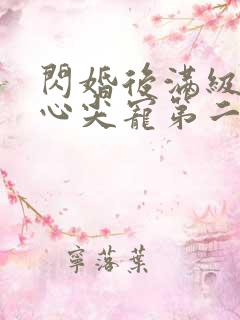 閃婚後滿級
心尖寵第二
寧落葉